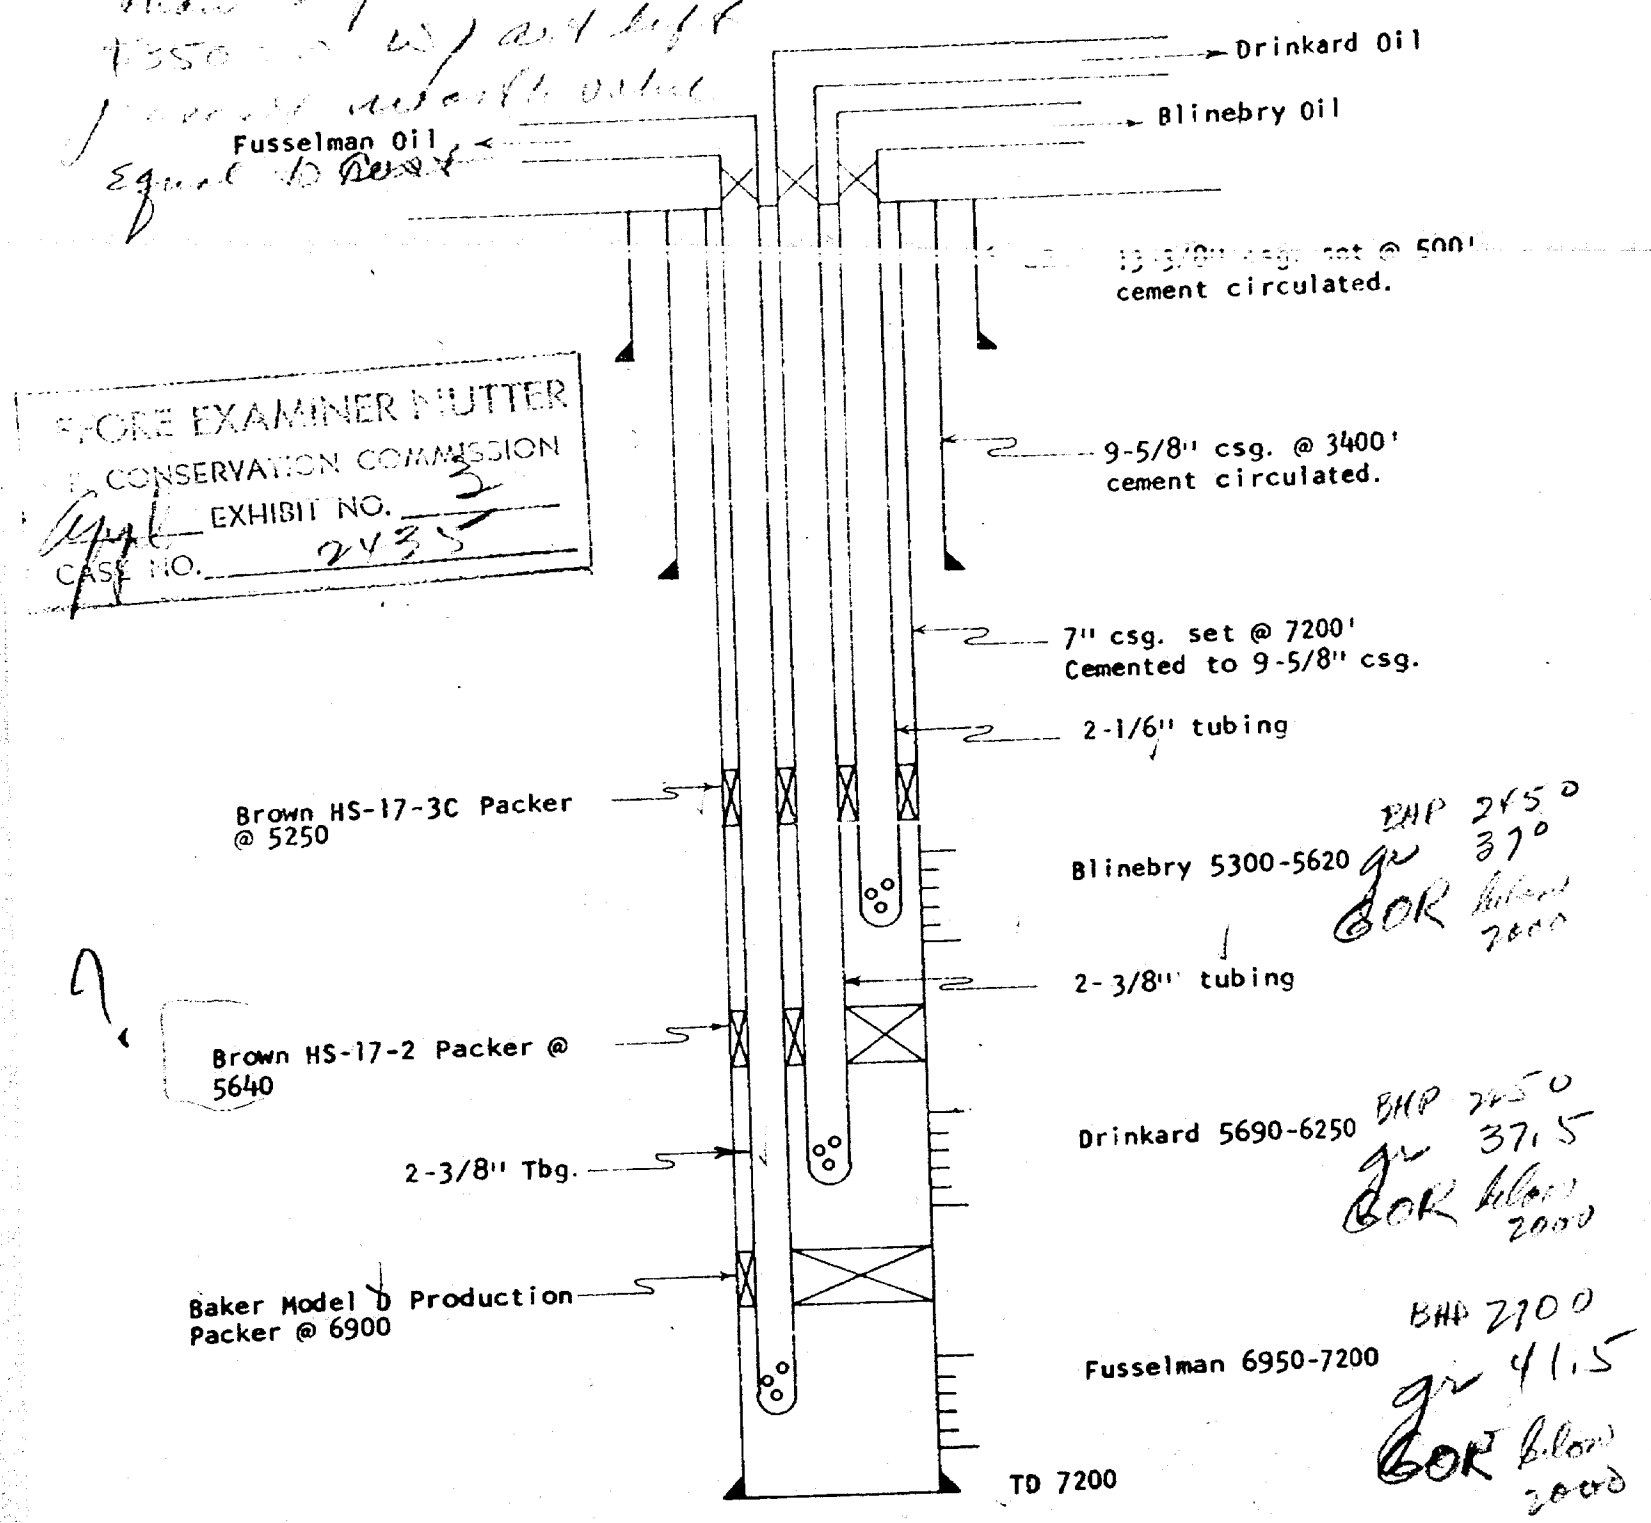 $350 w/ art lift
worth value
Equal to
Drinkard Oil
Blinebry Oil
Fusselman Oil
13-3/8" csg. set @ 500'
cement circulated.
EXAMINER NUTTER
CONSERVATION COMMISSION
EXHIBIT NO. 3
CASE NO. 2435
9-5/8" csg. @ 3400'
cement circulated.
7" csg. set @ 7200'
Cemented to 9-5/8" csg.
2-1/6" tubing
Brown HS-17-3C Packer
@ 5250
Blinebry 5300-5620
BHP 2450
gr 37°
GOR below
2000
2-3/8" tubing
?
Brown HS-17-2 Packer @
5640
Drinkard 5690-6250
BHP 2250
gr 37.5
GOR below
2000
2-3/8" Tbg.
Baker Model D Production
Packer @ 6900
Fusselman 6950-7200
BHP 2700
gr 41.5
GOR below
2000
TD 7200